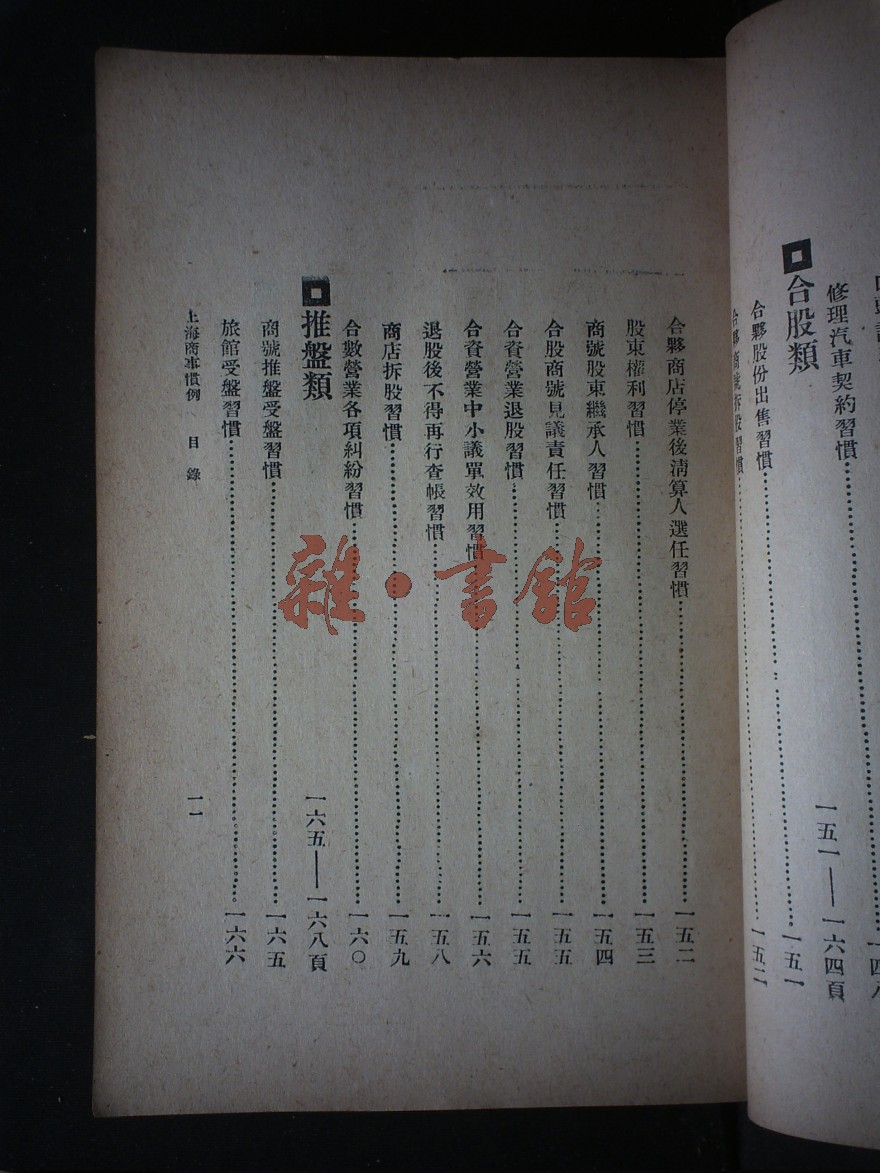 修理汽車契約習慣
合股類 一五一——一六四頁
合夥股份出售習慣……一五一
合夥商號拆股習慣……一五二
合夥商店停業後清算人選任習慣……一五二
股東權利習慣……一五三
商號股東繼承人習慣……一五四
合股商號見議責任習慣……一五五
合資營業退股習慣……一五五
合資營業中小議單效用習慣……一五六
退股後不得再行查帳習慣……一五八
商店拆股習慣……一五九
合數營業各項糾紛習慣……一六〇
推盤類 一六五——一六八頁
商號推盤受盤習慣……一六五
旅館受盤習慣……一六六
上海商事慣例 目錄 一一
雜·書館